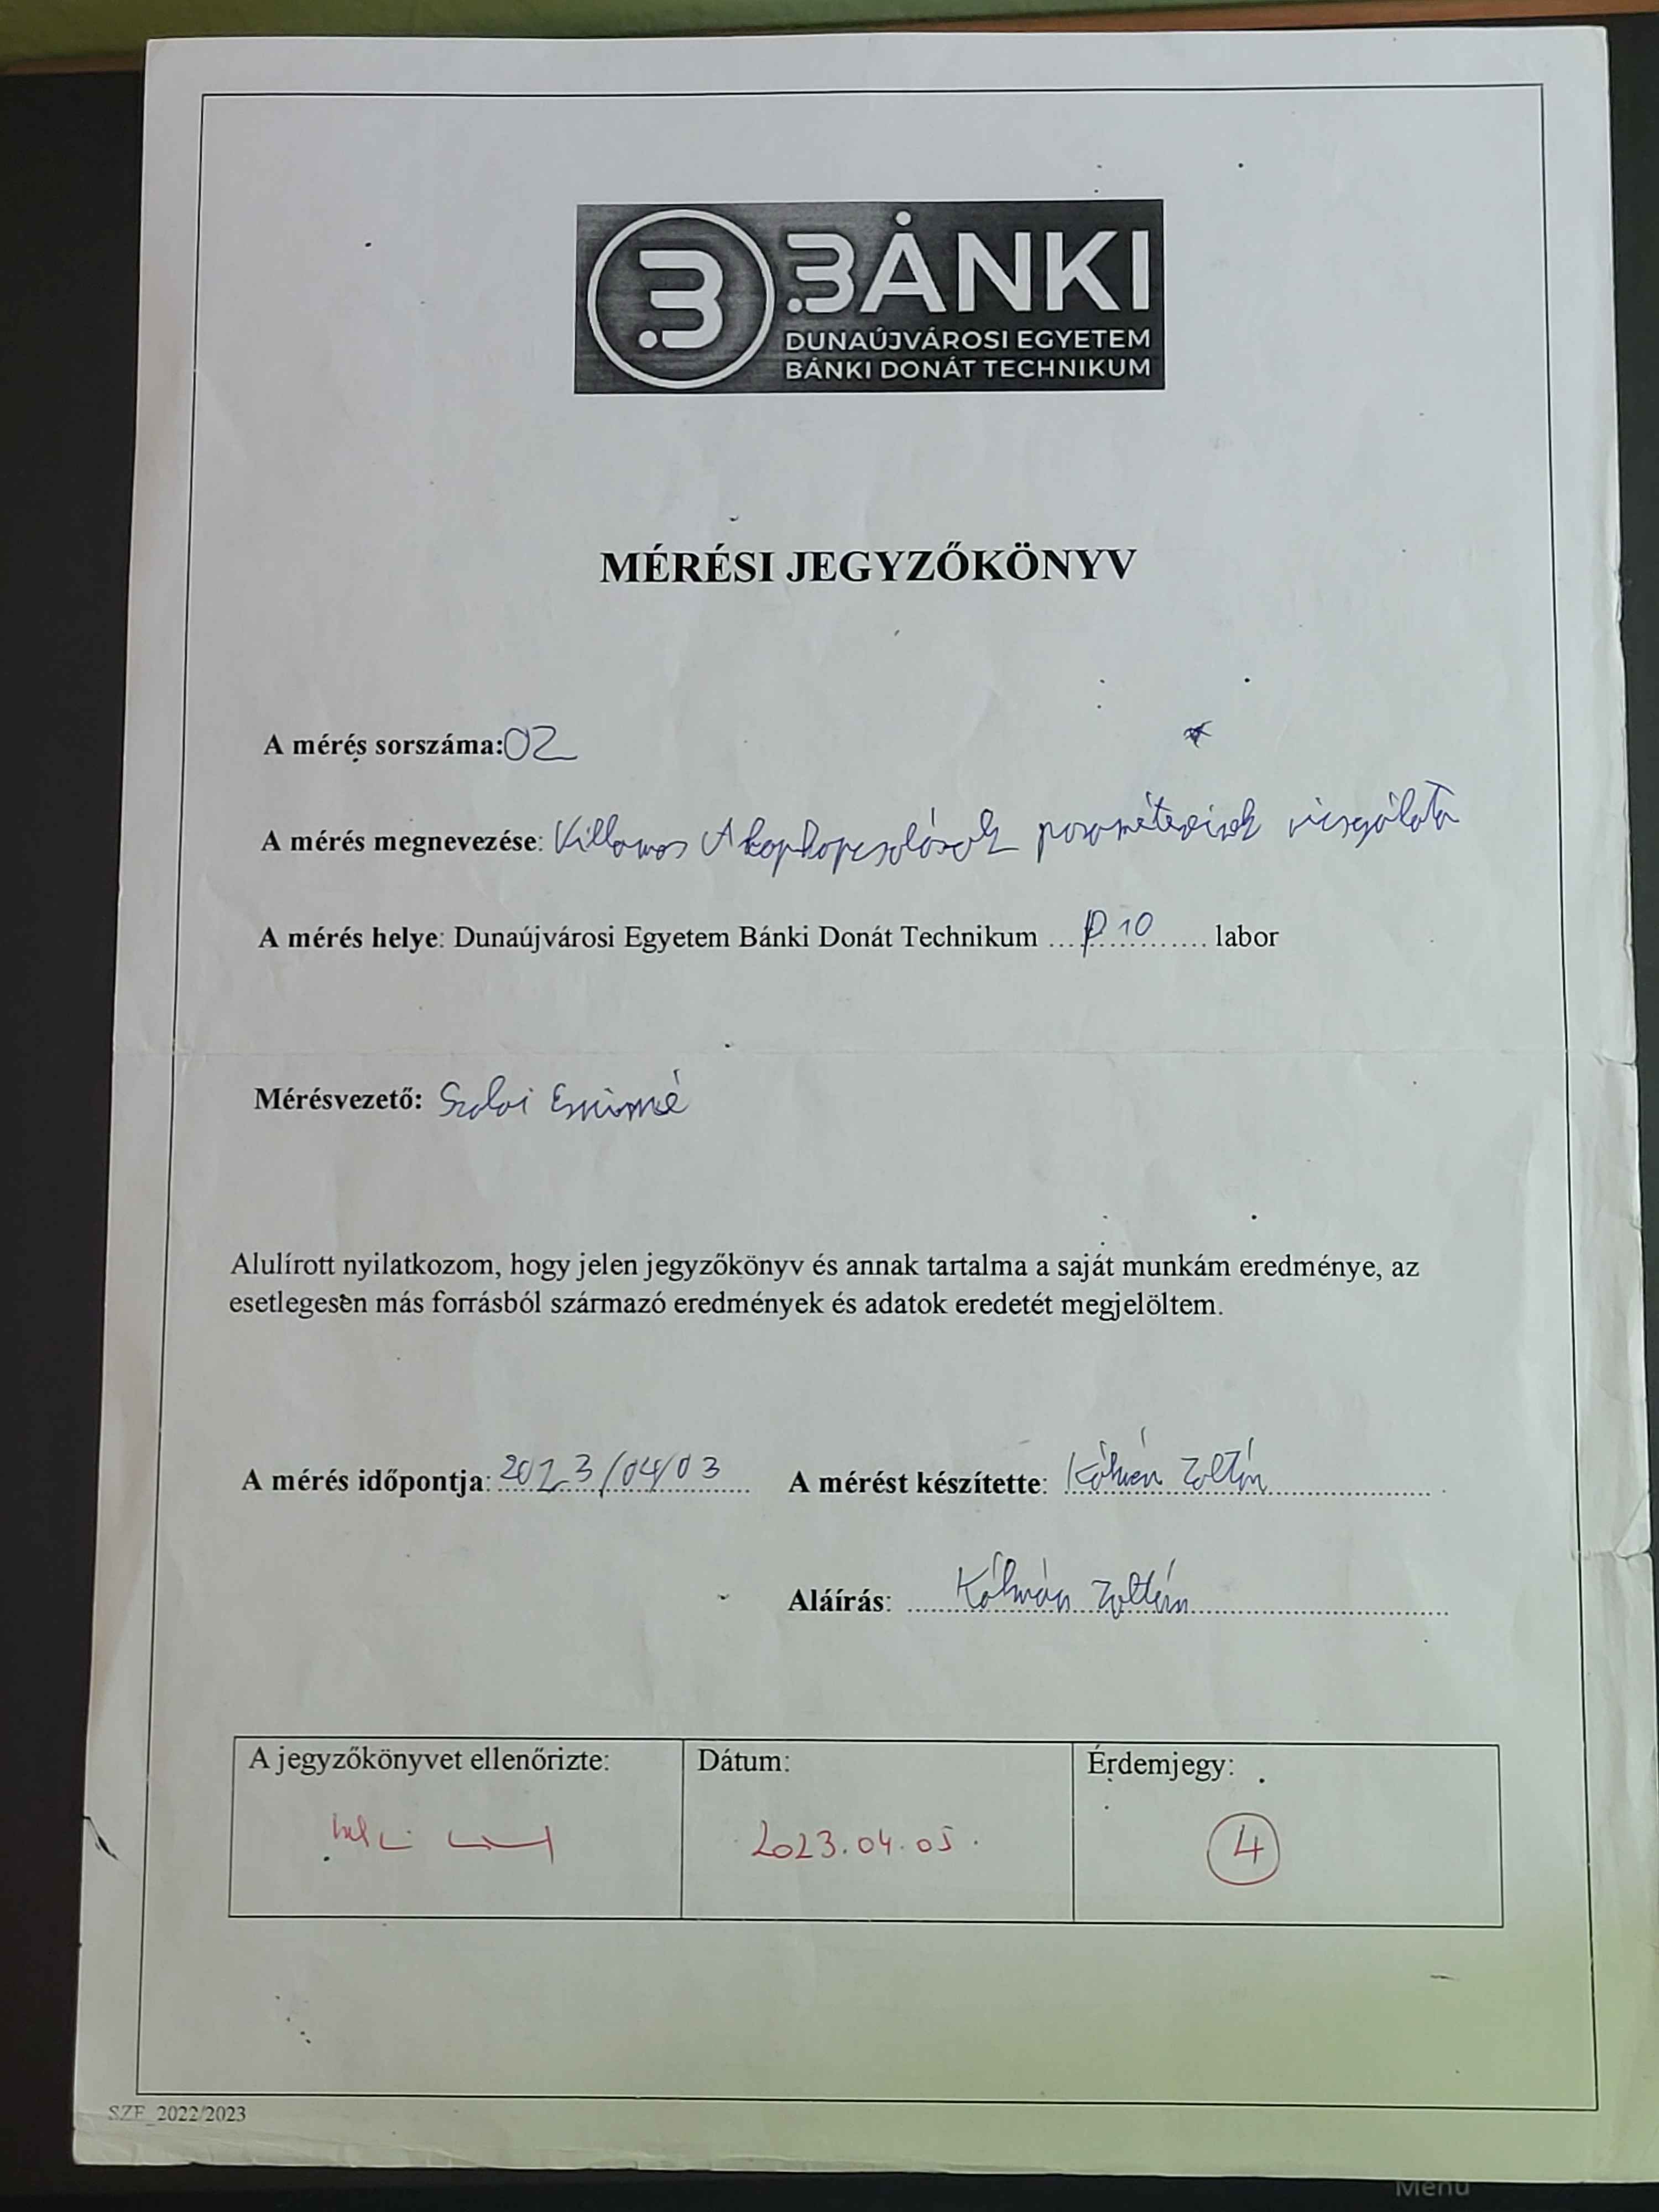 BÁNKI
DUNAÚJVÁROSI EGYETEM
BÁNKI DONÁT TECHNIKUM
MÉRÉSI JEGYZŐKÖNYV
A mérés sorszáma: 02
A mérés megnevezése: Villamos Alapkapcsolások paramétereinek vizsgálata
A mérés helye: Dunaújvárosi Egyetem Bánki Donát Technikum ...P10... labor
Mérésvezető: Szalai
Alulírott nyilatkozom, hogy jelen jegyzőkönyv és annak tartalma a saját munkám eredménye, az
esetlegesen más forrásból származó eredmények és adatok eredetét megjelöltem.
A mérés időpontja: 2023/04/03 A mérést készítette: Kálmán Zoltán
Aláírás: Kálmán Zoltán
A jegyzőkönyvet ellenőrizte: Dátum: Érdemjegy:
2023.04.05. 4
SZE_2022/2023
Menu